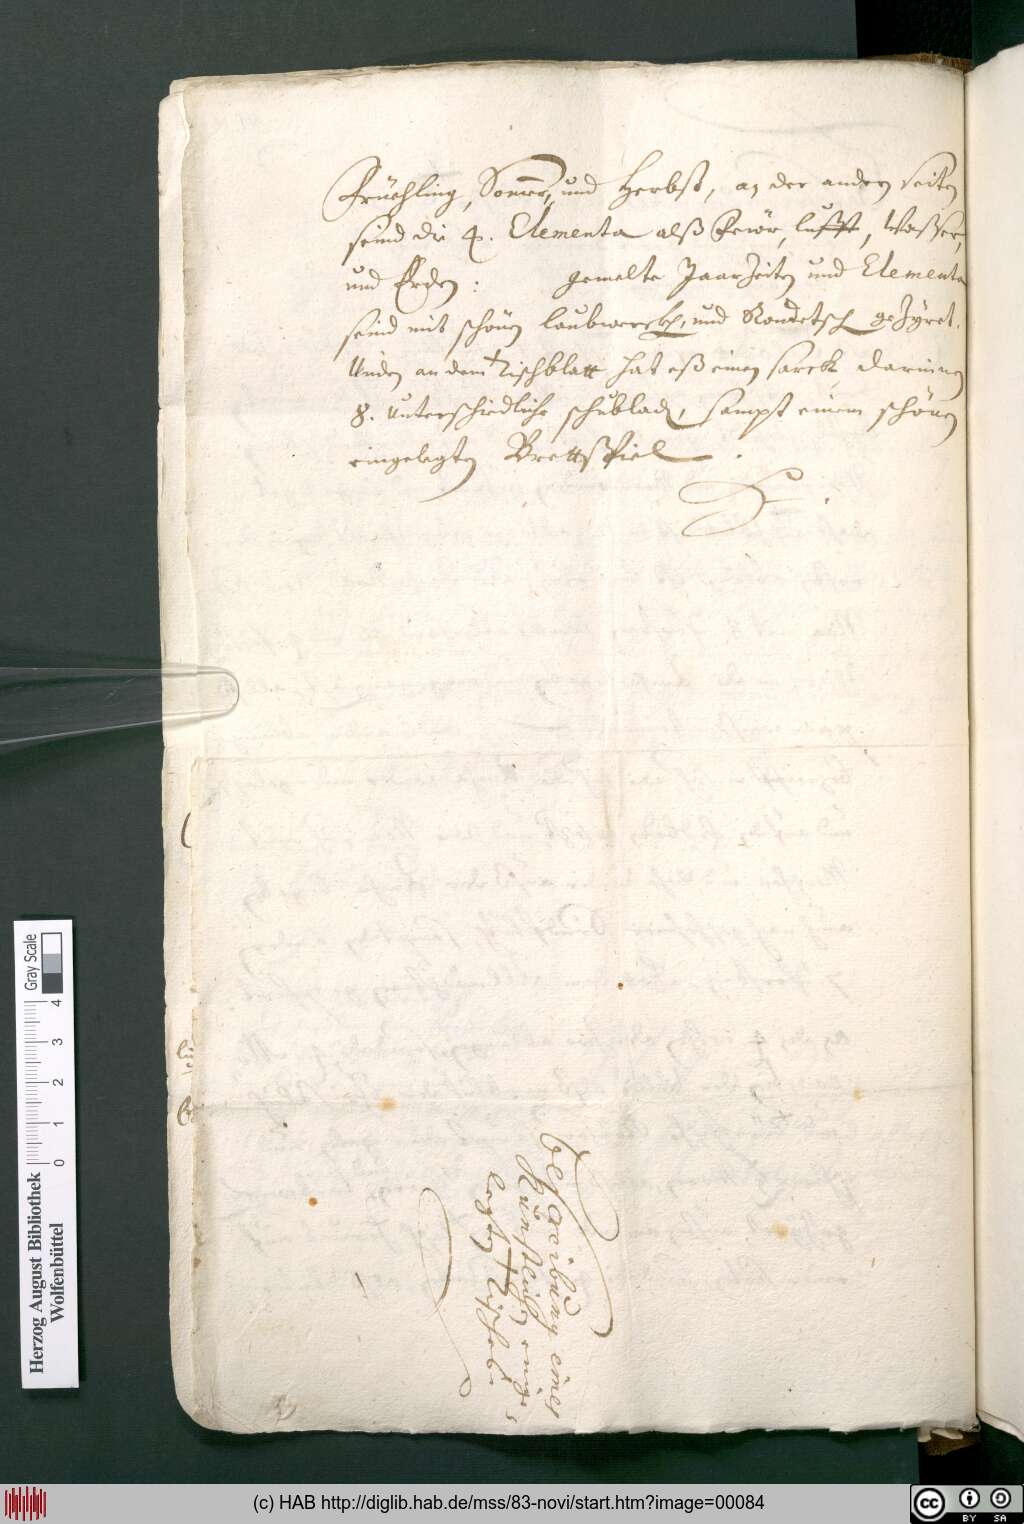 Früehling, Somer, und Herbst, an der andern seiten
seind die 4. Elementa alß Feiör, lufft, Waßer,
und Erden: gemelte JaarZeiten und Elementa
seind mit schönen laubwerckh, und Rondetsch geZüret.
Unden an dem Tischblatt hat eß einen sarck, darinnen
8. unterschidliche schubladen, sampt einem schönen
eingelegten Brettspiel.
beschreibung eines
Künstlichen einge-
legten Tisches.
Herzog August Bibliothek
Wolfenbüttel
0 1 2 3 4
Gray Scale
(c) HAB http://diglib.hab.de/mss/83-novi/start.htm?image=00084
cc BY SA